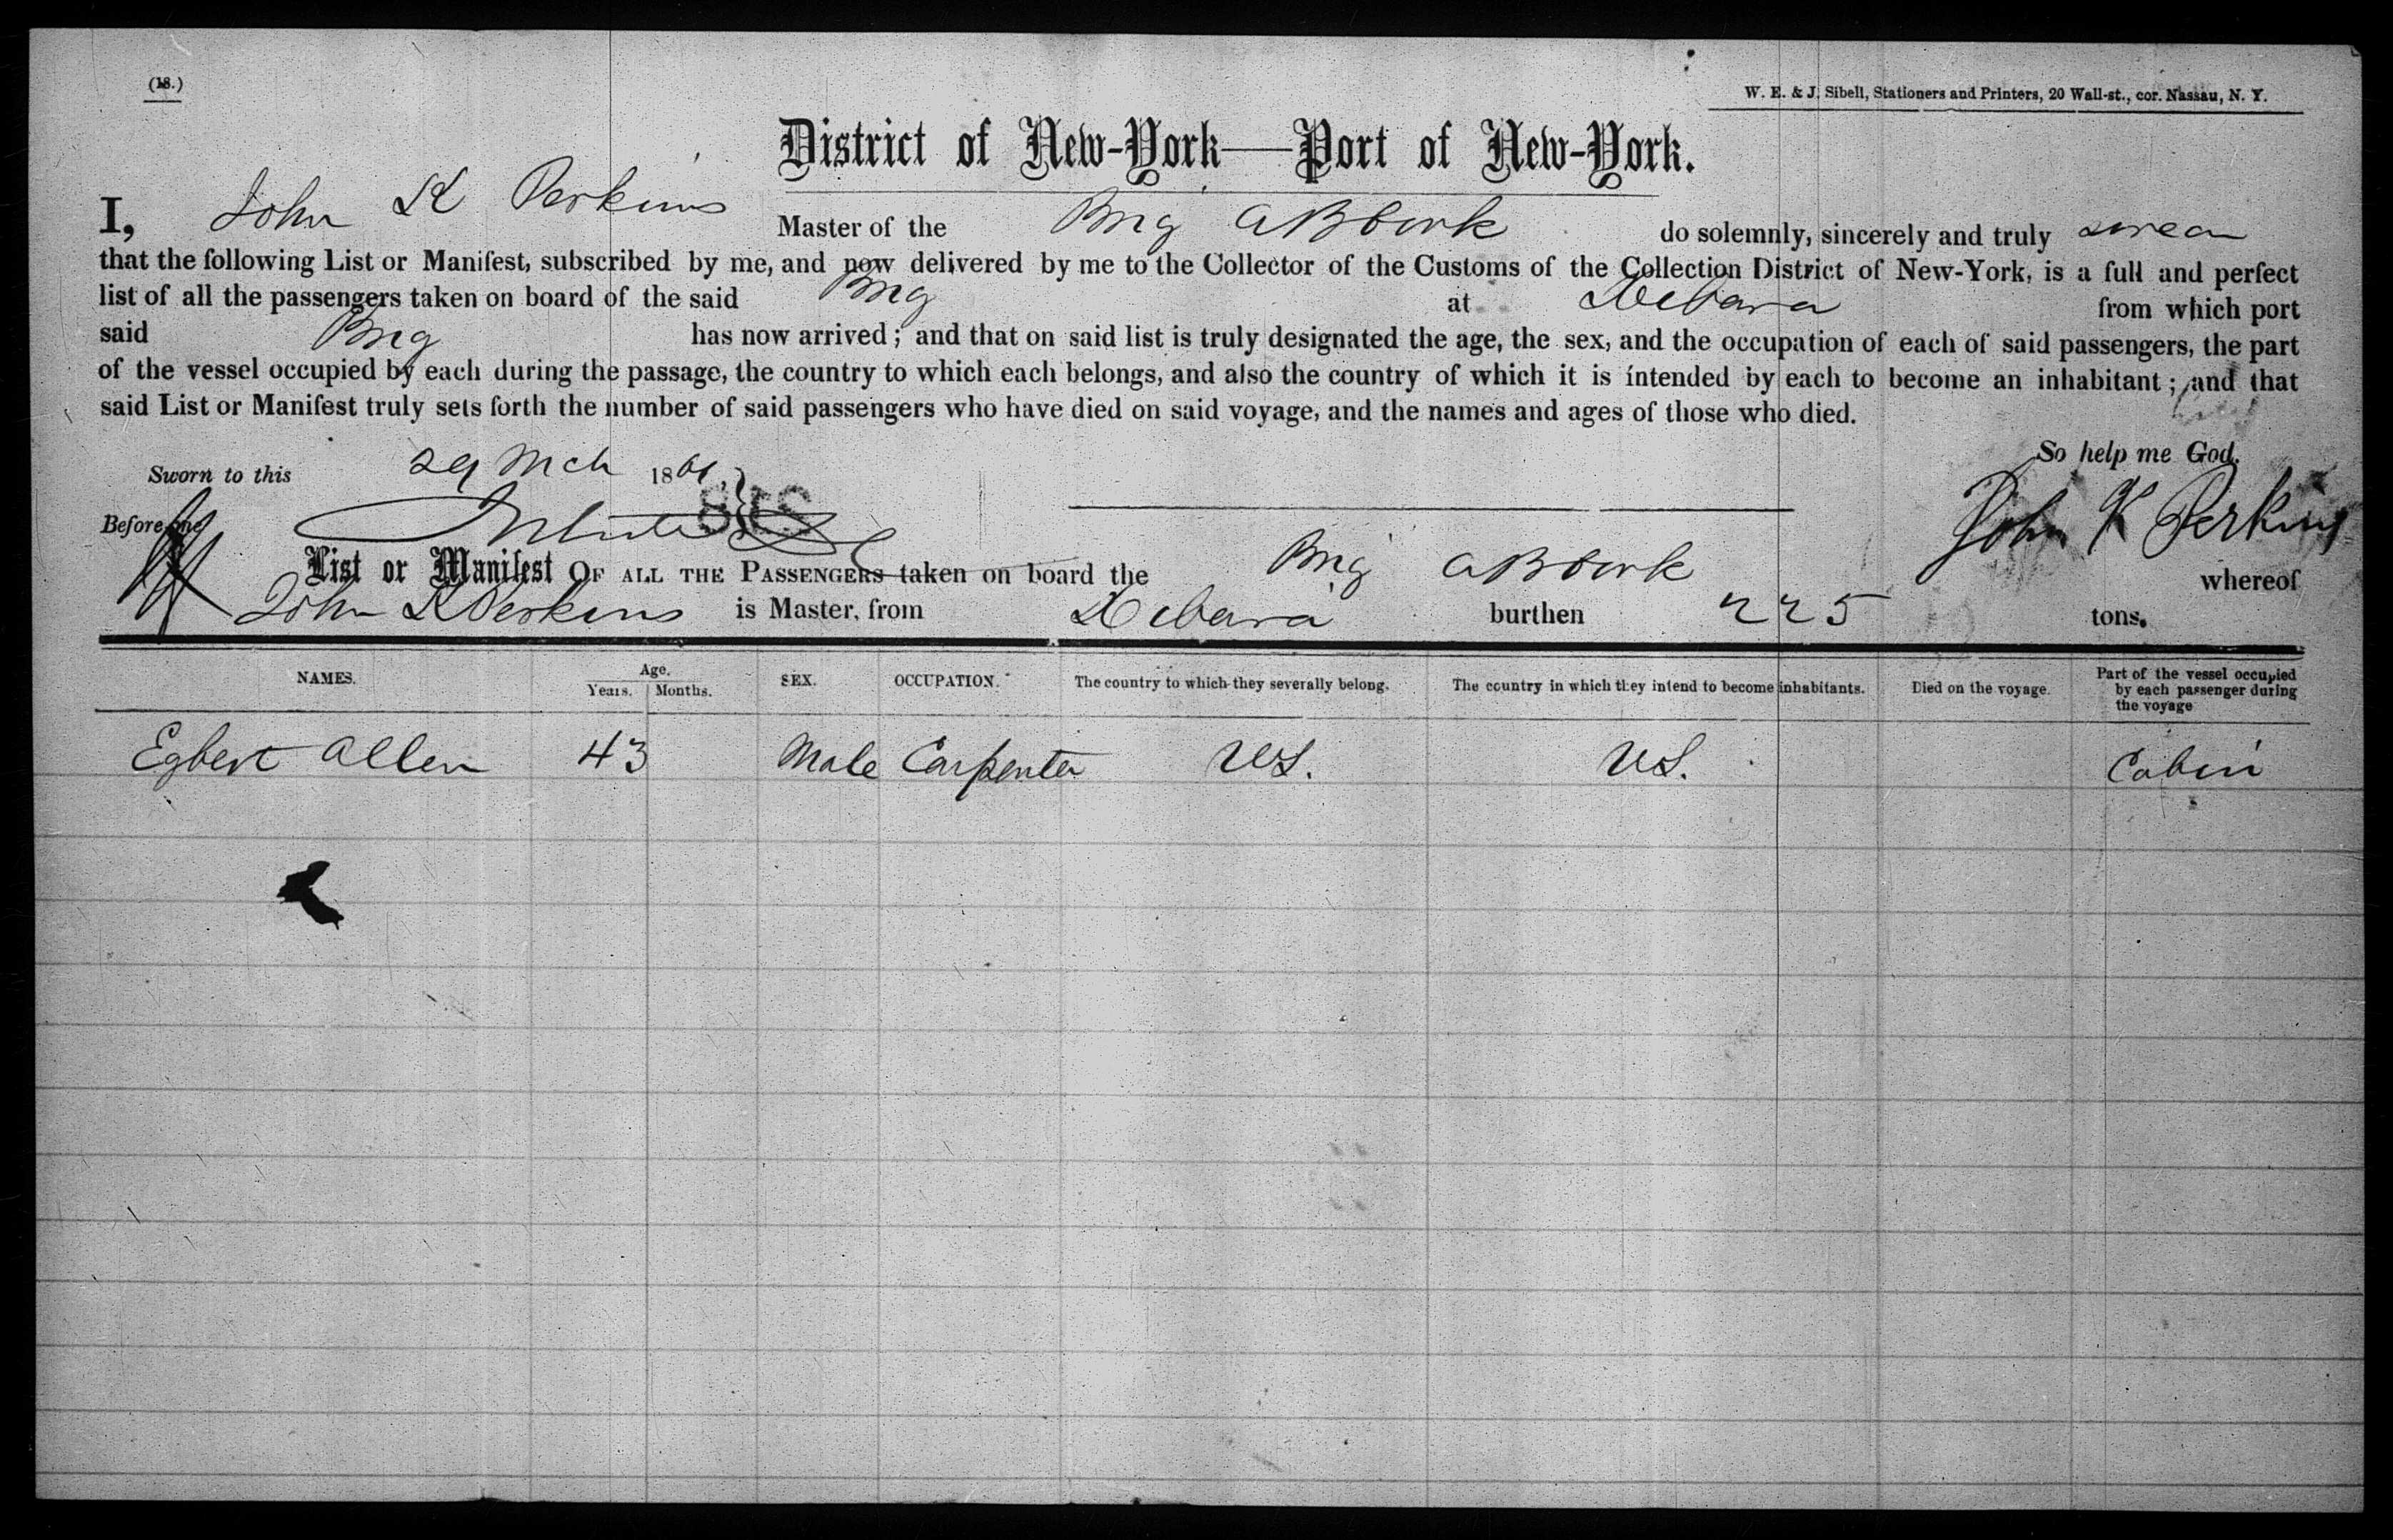 (18.)
W. E. & J. Sibell, Stationers and Printers, 20 Wall-st., cor. Nassau, N. Y.
District of New-York—Port of New-York.
I, John K Perkins Master of the Brig A B Cook do solemnly, sincerely and truly swear
that the following List or Manifest, subscribed by me, and now delivered by me to the Collector of the Customs of the Collection District of New-York, is a full and perfect
list of all the passengers taken on board of the said Brig at Xibara from which port
said Brig has now arrived; and that on said list is truly designated the age, the sex, and the occupation of each of said passengers, the part
of the vessel occupied by each during the passage, the country to which each belongs, and also the country of which it is intended by each to become an inhabitant; and that
said List or Manifest truly sets forth the number of said passengers who have died on said voyage, and the names and ages of those who died.
So help me God.
Sworn to this 29 Mch 1861
Before me John K Perkins
List or Manifest OF ALL THE PASSENGERS taken on board the Brig A B Cook whereof
John K Perkins is Master, from Xibara burthen 225 tons.
NAMES. Age. Years. Months. SEX. OCCUPATION. The country to which they severally belong. The country in which they intend to become inhabitants. Died on the voyage. Part of the vessel occupied by each passenger during the voyage
Egbert Allen 43 Male Carpenter US. US. Cabin